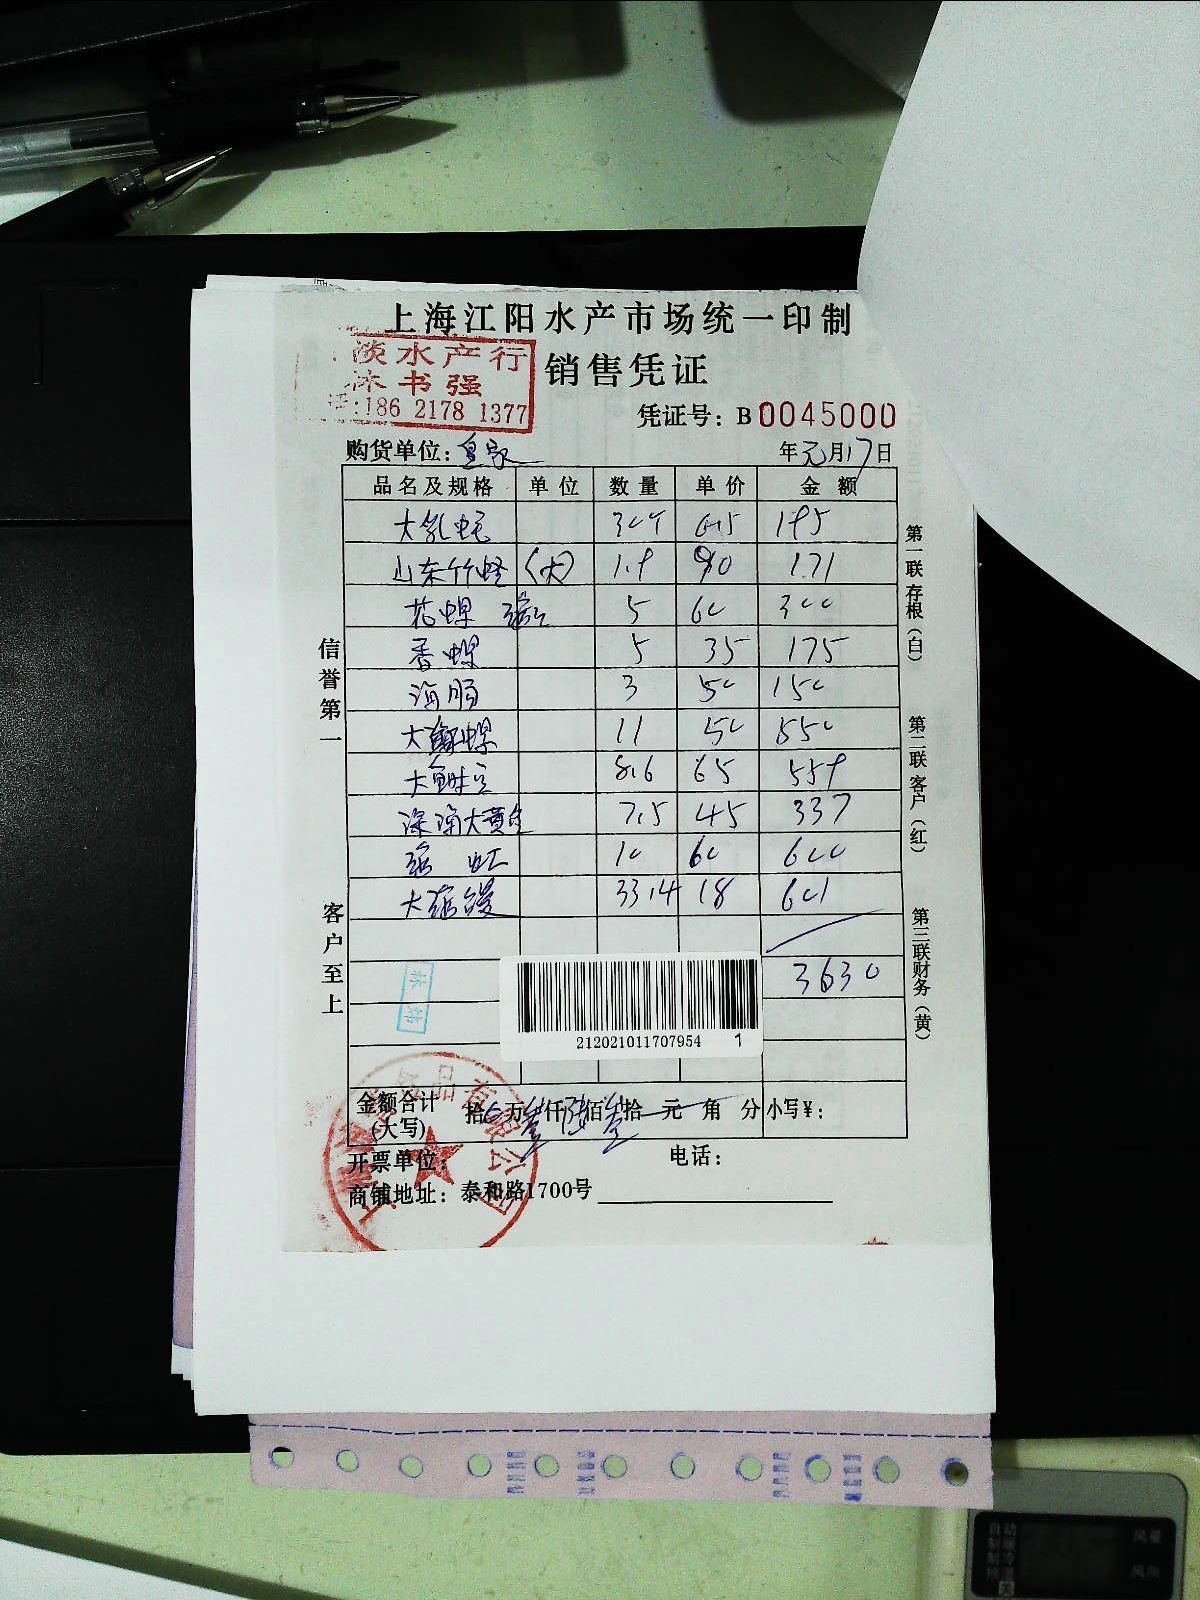 上海江阳水产市场统一印制
销售凭证
淡水产行
林书强
话:186 2178 1377
凭证号: B 0045000
购货单位: 皇家 年元月17日
品名及规格 单位 数量 单价 金额
300 0.65 195
山东竹蛏 (大) 1.9 90 171
花螺 5 60 300
香螺 5 35 175
海肠 3 50 150
大 螺 11 50 550
大 8.6 65 559
深海大黄 7.5 45 337
虹 10 60 600
大 鳗 33.4 18 601
3630
信誉第一
客户至上
第一联存根(白)
第二联客户(红)
第三联财务(黄)
212021011707954 1
金额合计(大写) 拾 万叁仟陆佰叁拾 元 角 分 小写¥:
开票单位: 电话:
商铺地址: 泰和路1700号
品有限公司